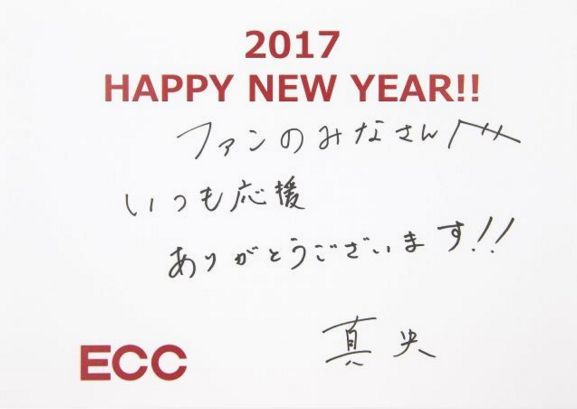 2017
HAPPY NEW YEAR!!
ファンのみなさん
いつも応援
ありがとうございます!!
真央
ECC